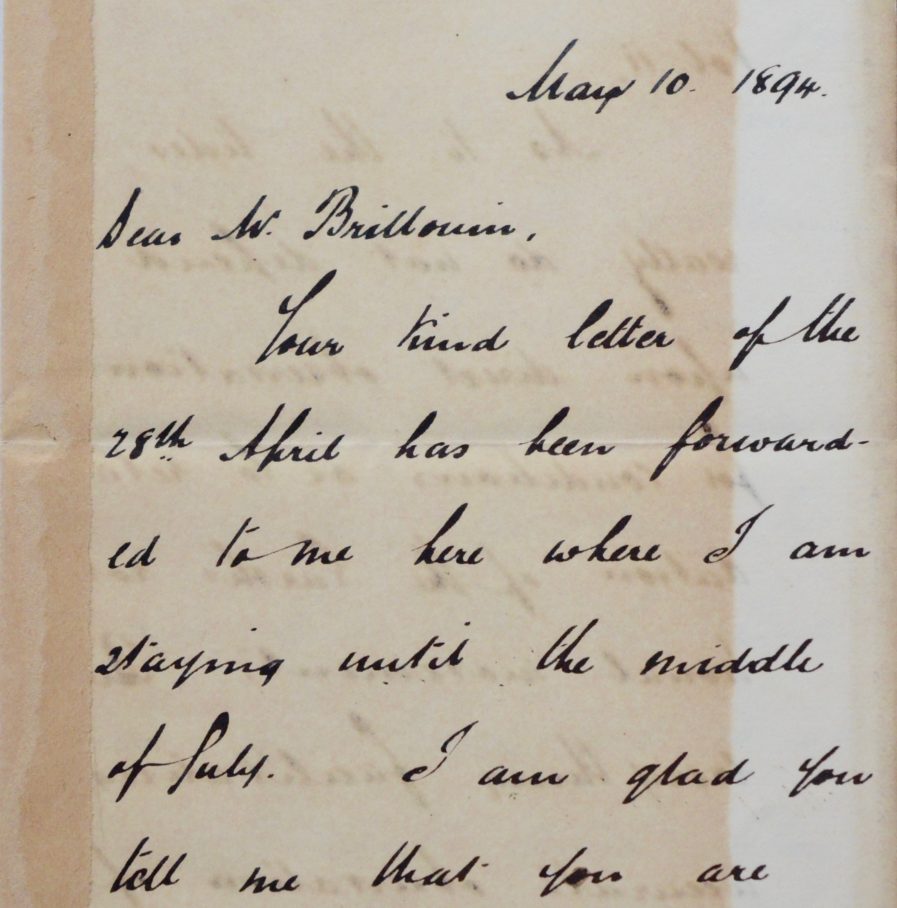 May 10. 1894.
Dear Mr. Brillouin,
Your kind letter of the
28th April has been forward-
ed to me here where I am
staying until the middle
of July. I am glad you
tell me that you are